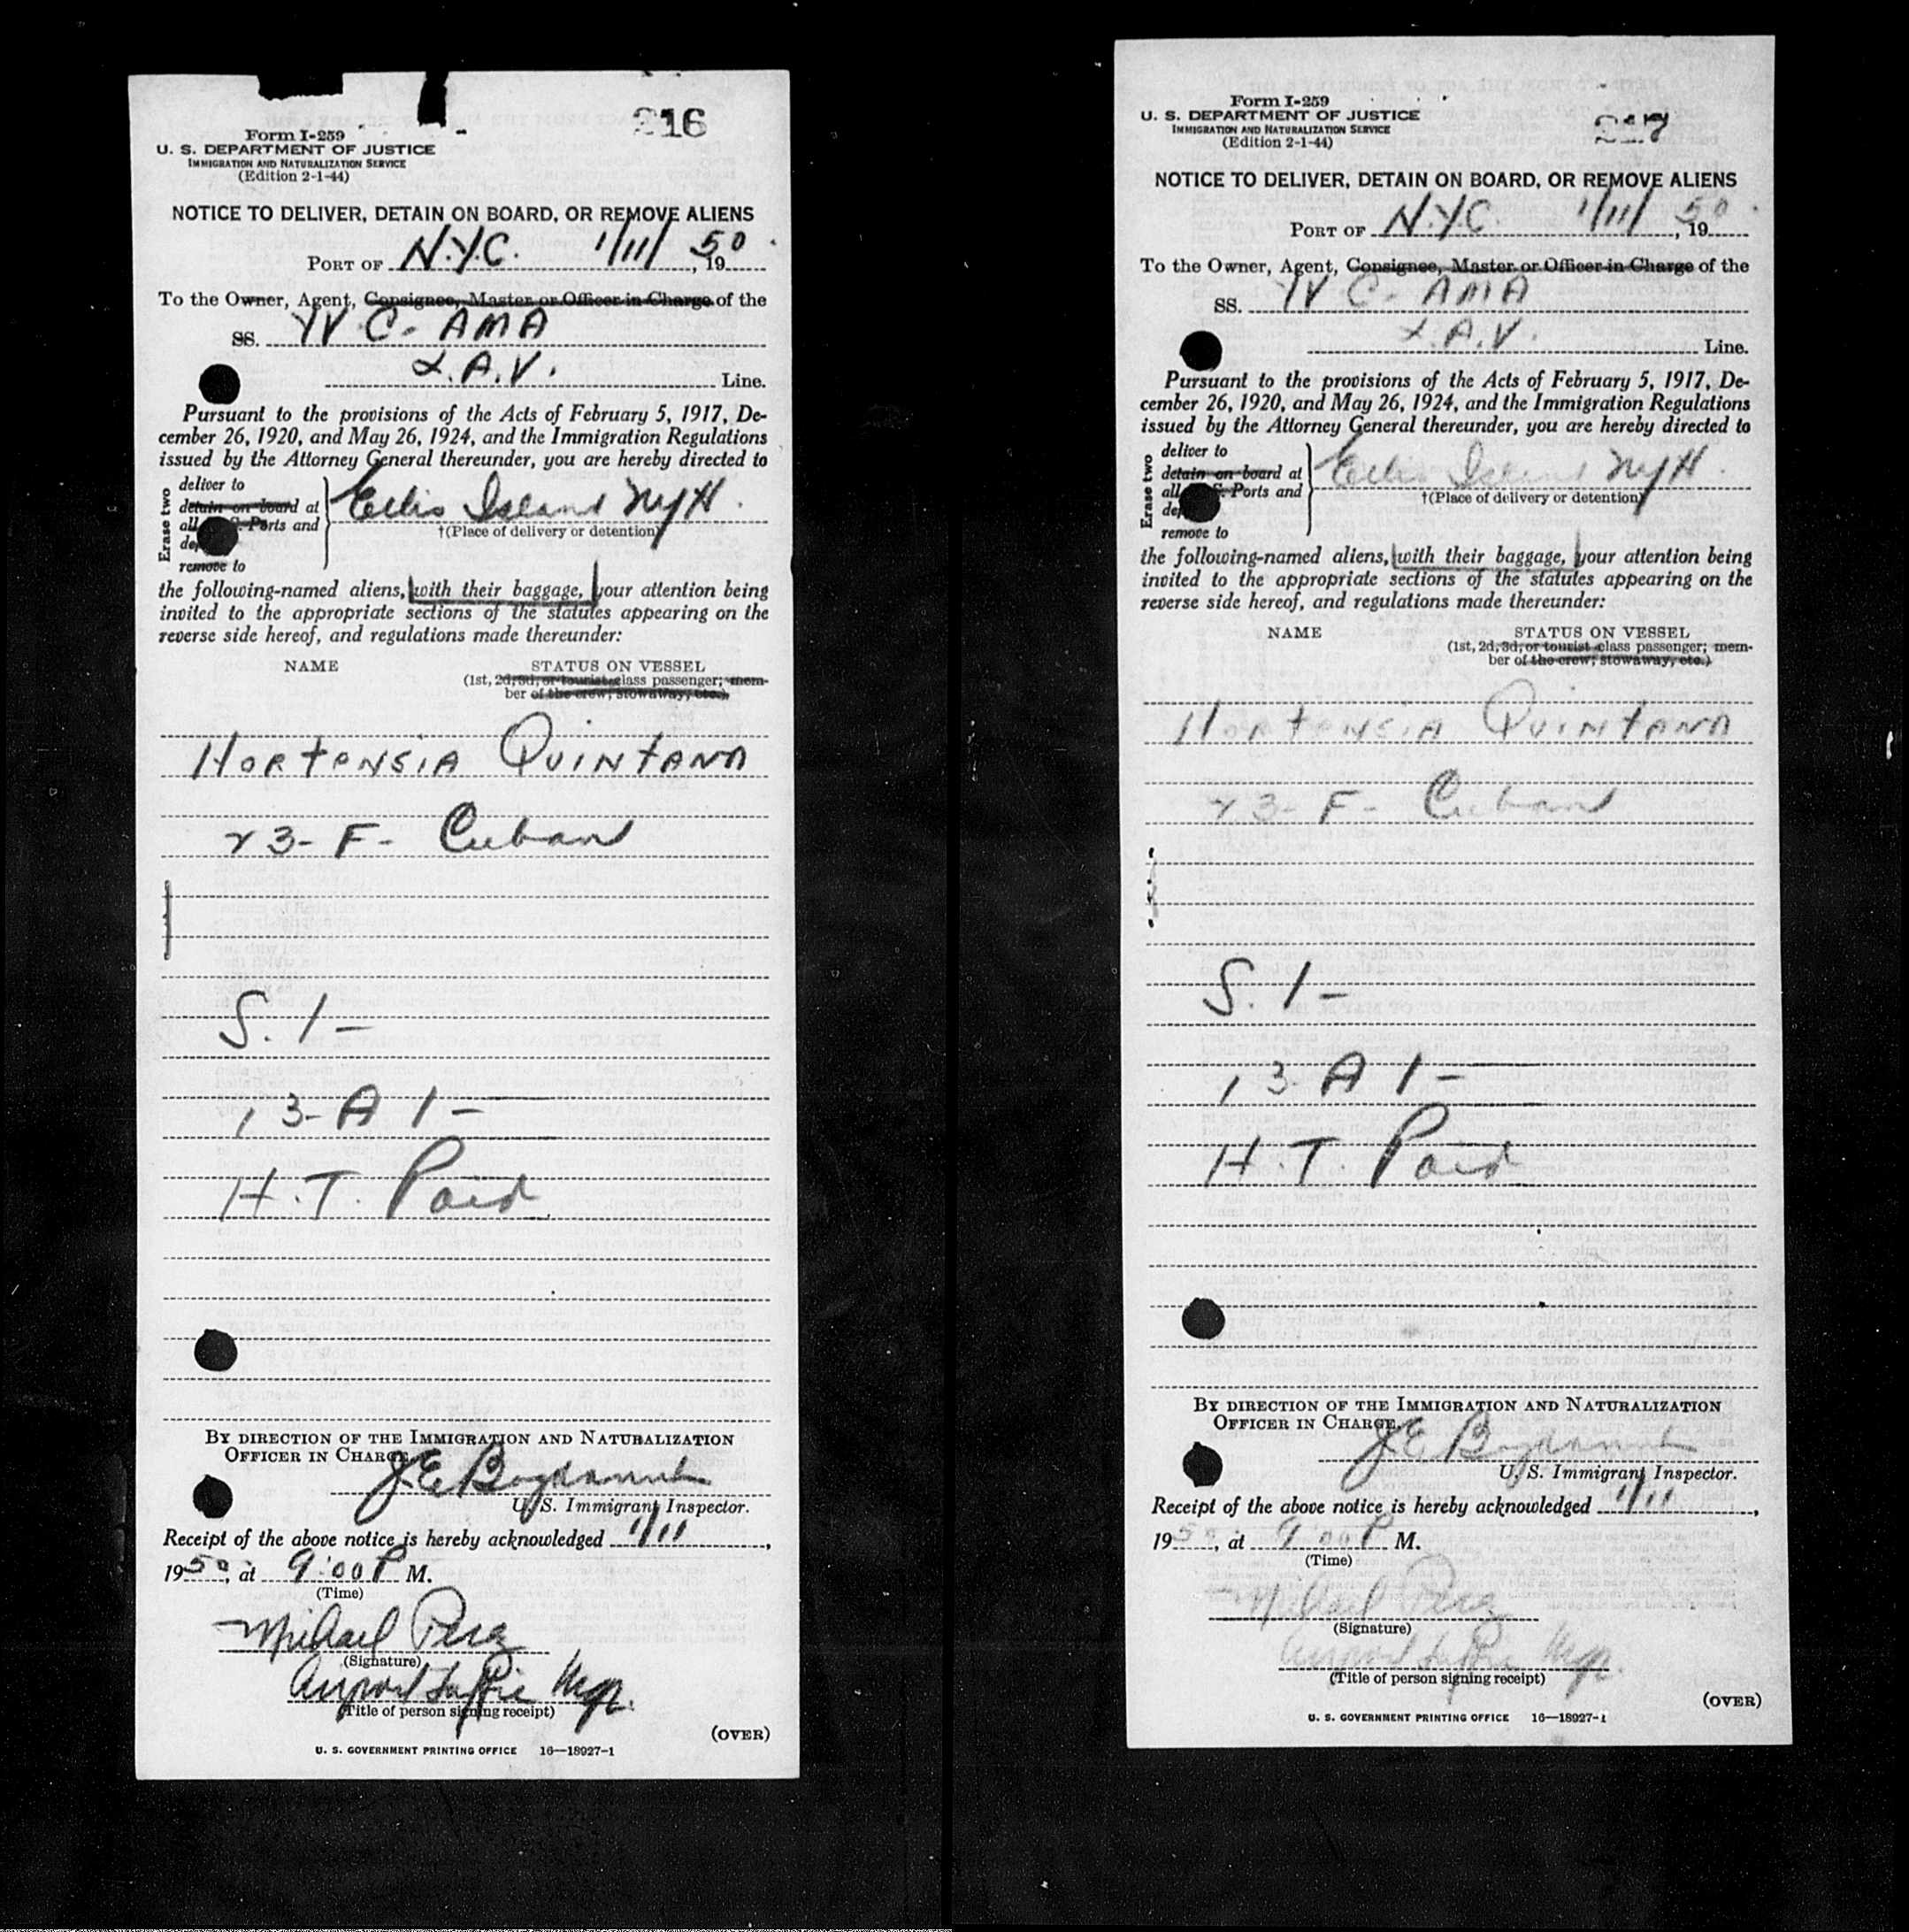 216
Form I-259
U. S. DEPARTMENT OF JUSTICE
IMMIGRATION AND NATURALIZATION SERVICE
(Edition 2-1-44)
NOTICE TO DELIVER, DETAIN ON BOARD, OR REMOVE ALIENS
PORT OF N.Y.C. 1/11/, 1950
To the Owner, Agent, Consignee, Master or Officer in Charge of the
SS. YV C-AMA
L.A.V. Line.
Pursuant to the provisions of the Acts of February 5, 1917, De-
cember 26, 1920, and May 26, 1924, and the Immigration Regulations
issued by the Attorney General thereunder, you are hereby directed to
Erase two
deliver to
detain on board at
all Ports and
remove to
Ellis Island NYH.
†(Place of delivery or detention)
the following-named aliens, with their baggage, your attention being
invited to the appropriate sections of the statutes appearing on the
reverse side hereof, and regulations made thereunder:
NAME STATUS ON VESSEL
(1st, 2d, 3d, or tourist class passenger; mem-
ber of the crew, stowaway, etc.)
HORTENSIA QUINTANA
23-F- Cuban
S. 1-
13-A 1-
H.T. Paid
BY DIRECTION OF THE IMMIGRATION AND NATURALIZATION
OFFICER IN CHARGE,
J E
U. S. Immigrant Inspector.
Receipt of the above notice is hereby acknowledged 1/11,
1950, at 9:00 P M.
(Time)
Michael
(Signature)
Airport Mgr.
(Title of person signing receipt)
(OVER)
U. S. GOVERNMENT PRINTING OFFICE 16—18927-1
Form I-259
U. S. DEPARTMENT OF JUSTICE
IMMIGRATION AND NATURALIZATION SERVICE
(Edition 2-1-44)
NOTICE TO DELIVER, DETAIN ON BOARD, OR REMOVE ALIENS
PORT OF N.Y.C. 1/11/, 1950
To the Owner, Agent, Consignee, Master or Officer in Charge of the
SS. YV C-AMA
L.A.V. Line.
Pursuant to the provisions of the Acts of February 5, 1917, De-
cember 26, 1920, and May 26, 1924, and the Immigration Regulations
issued by the Attorney General thereunder, you are hereby directed to
Erase two
deliver to
detain on board at
all Ports and
remove to
Ellis Island NYH.
†(Place of delivery or detention)
the following-named aliens, with their baggage, your attention being
invited to the appropriate sections of the statutes appearing on the
reverse side hereof, and regulations made thereunder:
NAME STATUS ON VESSEL
(1st, 2d, 3d, or tourist class passenger; mem-
ber of the crew, stowaway, etc.)
HORTENSIA QUINTANA
23-F- Cuban
S. 1-
13 A 1-
H.T Paid
BY DIRECTION OF THE IMMIGRATION AND NATURALIZATION
OFFICER IN CHARGE,
J E
U. S. Immigrant Inspector.
Receipt of the above notice is hereby acknowledged 1/11,
1950, at 9:00 P M.
(Time)
Michael
(Signature)
Airport Mgr.
(Title of person signing receipt)
(OVER)
U. S. GOVERNMENT PRINTING OFFICE 16—18927-1